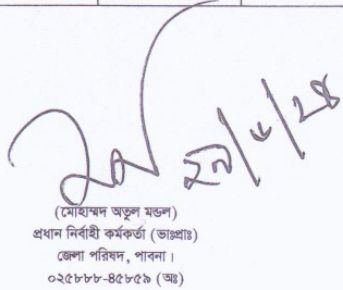 (মোহাম্মদ অতুল মন্ডল)
প্রধান নির্বাহী কর্মকর্তা (ভাঃপ্রাঃ)
জেলা পরিষদ, পাবনা।
০২৫৮৮৮-৪৫৮৫৯ (অঃ)